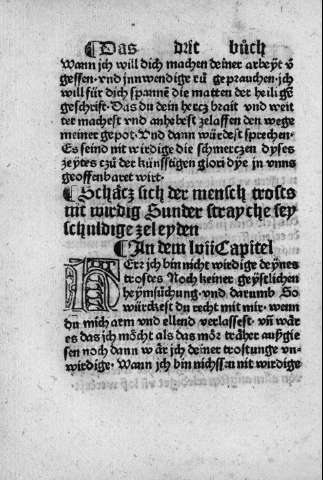 ¶ Das drit bůch
Wann jch will dich machen deiner arbeyt v̈
gessen · vnd jnnwendige rů geprauchen · jch
will für dich spannē die matten der heiligē
geschrift · Das du dein hertz brait vnd weit
ter machest vnd anhebest zelaffen den wege
meiner gepot · Vnd dann würdest sprechen ·
Es seind nit wirdige die schmertzen dyses
zeytes tzů der künfftigen glori dye jn vnns
geoffenbaret wirt ·
¶ Schätz sich der mensch trosts
nit wirdig Sunder strayche sey
schuldige zeleyden
¶ In dem lviiCapitel
HErr jch bin nicht wirdige deynes
trostes Noch keiner geystlichen
heymsůchung · vnd darumb So
würckest du recht mit mir · wenn
du mich arm vnd ellend verlassest · vn̄ wär
es das jch möcht als das mör träher außgies
sen noch dann wär jch deiner trostunge vn-
wirdige · Wann jch bin nichssan nit wirdige